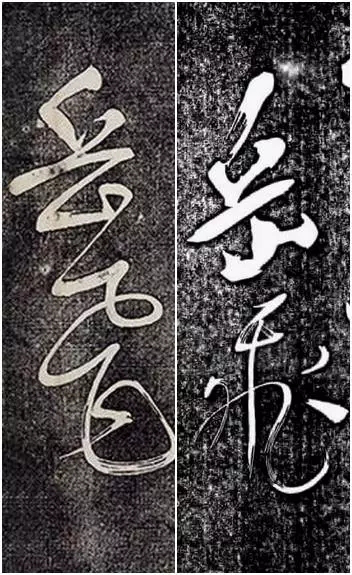 岳飛
岳飛